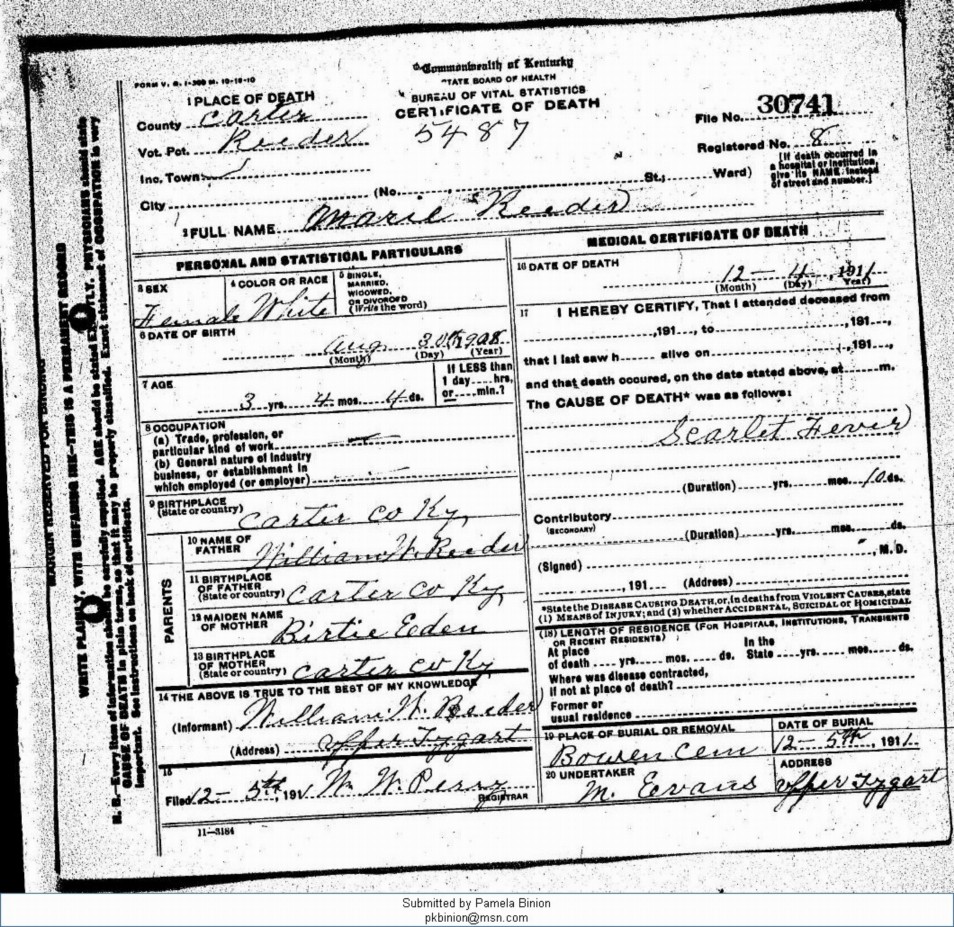 FORM V. S. 1-300 M. 10-19-10
Commonwealth of Kentucky
STATE BOARD OF HEALTH
BUREAU OF VITAL STATISTICS
CERTIFICATE OF DEATH
5487
File No. 30741
Registered No. 8
[If death occurred in
a hospital or institution,
give its NAME instead
of street and number.]
1 PLACE OF DEATH
County Carter
Vot. Pct. Reeder
Inc. Town
City (No. St.; Ward)
2 FULL NAME Marie Reeder
PERSONAL AND STATISTICAL PARTICULARS
3 SEX
Female
4 COLOR OR RACE
White
5 SINGLE,
MARRIED,
WIDOWED,
OR DIVORCED
(Write the word)
6 DATE OF BIRTH
Aug 30th 1908
(Month) (Day) (Year)
7 AGE
3 yrs. 4 mos. 4 ds.
If LESS than
1 day hrs,
or min.?
8 OCCUPATION
(a) Trade, profession, or
particular kind of work
(b) General nature of industry
business, or establishment in
which employed (or employer)
9 BIRTHPLACE
(State or country) Carter Co Ky,
PARENTS
10 NAME OF
FATHER William W. Reeder
11 BIRTHPLACE
OF FATHER
(State or country) Carter Co Ky,
12 MAIDEN NAME
OF MOTHER Birtie Eden
13 BIRTHPLACE
OF MOTHER
(State or country) Carter Co Ky
14 THE ABOVE IS TRUE TO THE BEST OF MY KNOWLEDGE
(Informant) William W. Reeder
(Address) Upper Tygart
15
Filed 12 - 5th, 1911 W. W. Perry
REGISTRAR
11-3184
MEDICAL CERTIFICATE OF DEATH
16 DATE OF DEATH
12 - 4, 1911
(Month) (Day) (Year)
17 I HEREBY CERTIFY, That I attended deceased from
,191 , to ,191 ,
that I last saw h alive on ,191 ,
and that death occured, on the date stated above, at m.
The CAUSE OF DEATH* was as follows:
Scarlet Fever
(Duration) yrs. mos. 10 ds.
Contributory
(SECONDARY)
(Duration) yrs. mos. ds.
(Signed) M. D.
, 191 (Address)
*State the DISEASE CAUSING DEATH, or, in deaths from VIOLENT CAUSES, state
(1) MEANS of INJURY; and (2) whether ACCIDENTAL, SUICIDAL or HOMICIDAL
(18) LENGTH OF RESIDENCE (FOR HOSPITALS, INSTITUTIONS, TRANSIENTS
OR RECENT RESIDENTS)
At place In the
of death yrs. mos. ds. State yrs. mos. ds.
Where was disease contracted,
if not at place of death?
Former or
usual residence
19 PLACE OF BURIAL OR REMOVAL
Bowen Cem
DATE OF BURIAL
12 - 5th, 1911.
20 UNDERTAKER
M. Evans
ADDRESS
Upper Tygart
MARGIN RESERVED FOR BINDING
WRITE PLAINLY, WITH UNFADING INK—THIS IS A PERMANENT RECORD
N. B.—Every item of information should be carefully supplied. AGE should be stated EXACTLY. PHYSICIANS should state
CAUSE OF DEATH in plain terms, so that it may be properly classified. Exact statement of OCCUPATION is very
important. See instructions on back of certificate.
Submitted by Pamela Binion
pkbinion@msn.com